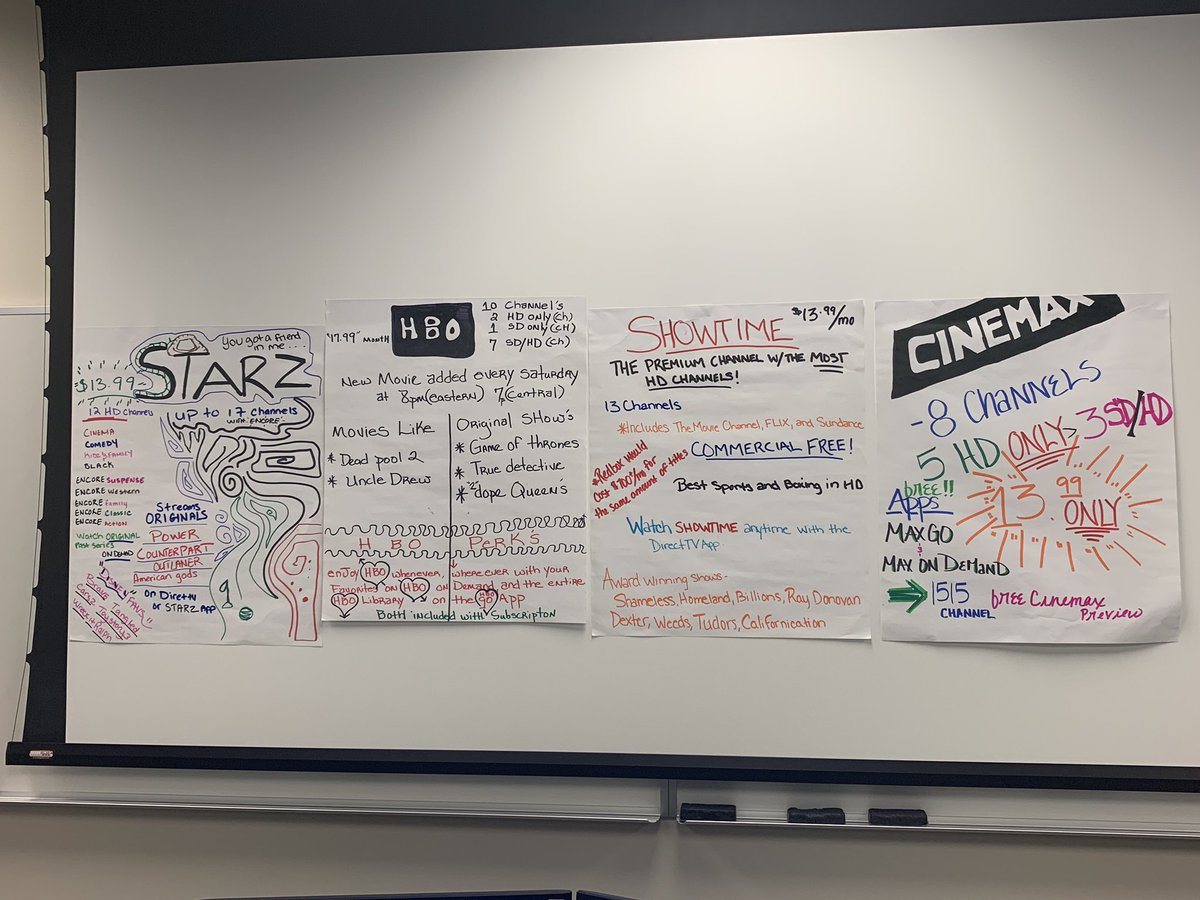 You got a friend
in me...
STARZ
$13.99
12 HD Channels
UP to 17 channels
with "ENCORE"
CINEMA
COMEDY
KIDS & FAMILY
BLACK
ENCORE SUSPENSE
ENCORE Western
ENCORE family
ENCORE Classic
ENCORE Action
Watch ORIGINAL
Past Series
ON DEMAND
Streams
ORIGINALS
POWER
COUNTERPART
OUTLANER
American gods
on Directv
or STARZ APP
"Disney FAVS"
"17.99" Month
HBO
10 Channel's
2 HD only (ch)
1 SD only (CH)
7 SD/HD (ch)
New Movie added every Saturday
at 8pm(eastern) 7(Central)
Movies Like
* Dead pool 2
* Uncle Drew
Original Show's
* Game of thrones
* True detective
* "2" dope Queen's
HBO PERKS
enjoy HBO whenever, wherever with your
Favorites on HBO on Demand, and the entire
HBO Library on the HBO GO App
Both included with Subscripton
SHOWTIME
$13.99/mo
THE PREMIUM CHANNEL W/THE MOST
HD CHANNELS!
13 Channels
*Includes The Movie Channel, FLIX, and Sundance
COMMERCIAL FREE!
*Redbox would
cost $700/mo for
the same amount of titles
Best Sports and Boxing in HD
Watch SHOWTIME anytime with the
DirectTV App
Award winning shows-
Shameless, Homeland, Billions, Ray Donovan
Dexter, Weeds, Tudors, Californication
CINEMAX
-8 Channels
5 HD ONLY> 3 SD/HD
free!!
Apps
MAX GO
&
MAX ON DEMAND
13.99
ONLY
1515
CHANNEL
free Cinemax
Preview